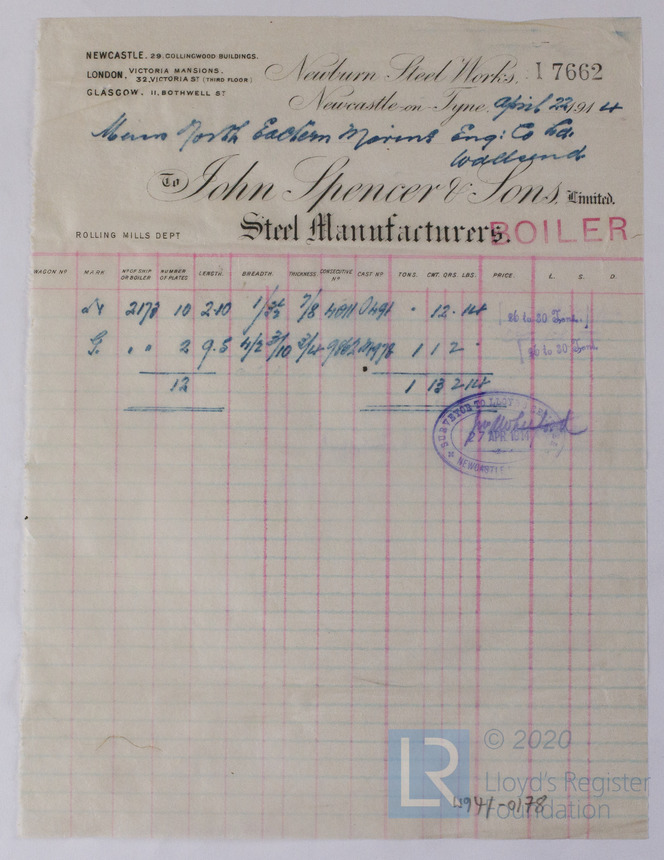 NEWCASTLE. 29. COLLINGWOOD BUILDINGS.
LONDON. VICTORIA MANSIONS. 32, VICTORIA ST (THIRD FLOOR)
GLASGOW. 11, BOTHWELL ST
Newburn Steel Works. 17662
Newcastle-on-Tyne. April 22 1914
Messrs North Eastern Marine Eng: Co Ld.
Wallsend
To John Spencer & Sons, Limited.
ROLLING MILLS DEPT Steel Manufacturers. BOILER
WAGON No MARK No OF SHIP OR BOILER NUMBER OF PLATES LENGTH. BREADTH. THICKNESS CONSECUTIVE No CAST No TONS. CWT. QRS. LBS. PRICE. L. S. D.
2173 10 2.10 7/8 12 . 14 26 to 30 Tons.
G. " " 2 9.5 3/4 1 1 2 26 to 30 Tons
12 1 13 2 14
SURVEYOR TO LLOYD'S REGISTER
27 APR 1914
NEWCASTLE
LR © 2020
Lloyd's Register
Foundation
W941-0178